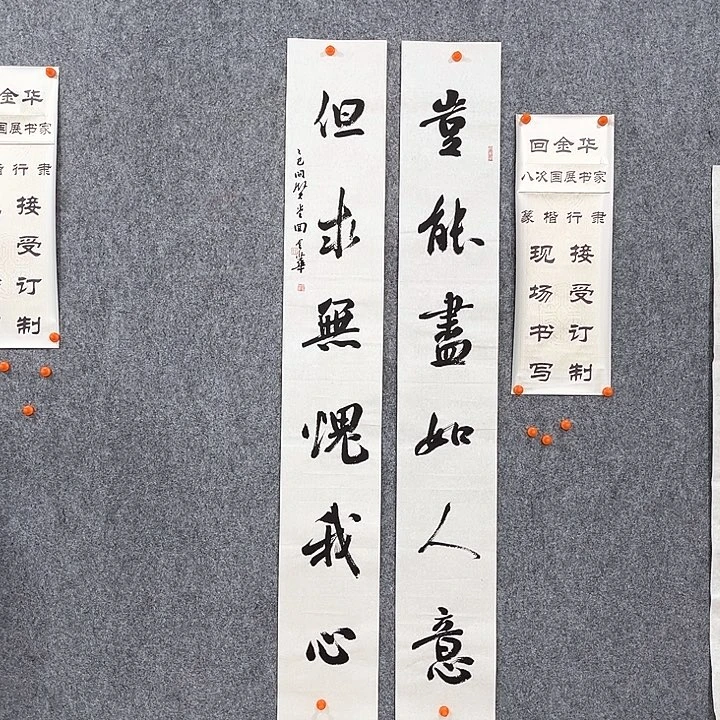 豈能盡如人意
但求無愧我心
回金华
八次国展书家
篆楷行隶
接受订制
现场书写
金华
国展书家
行隶
接受订制